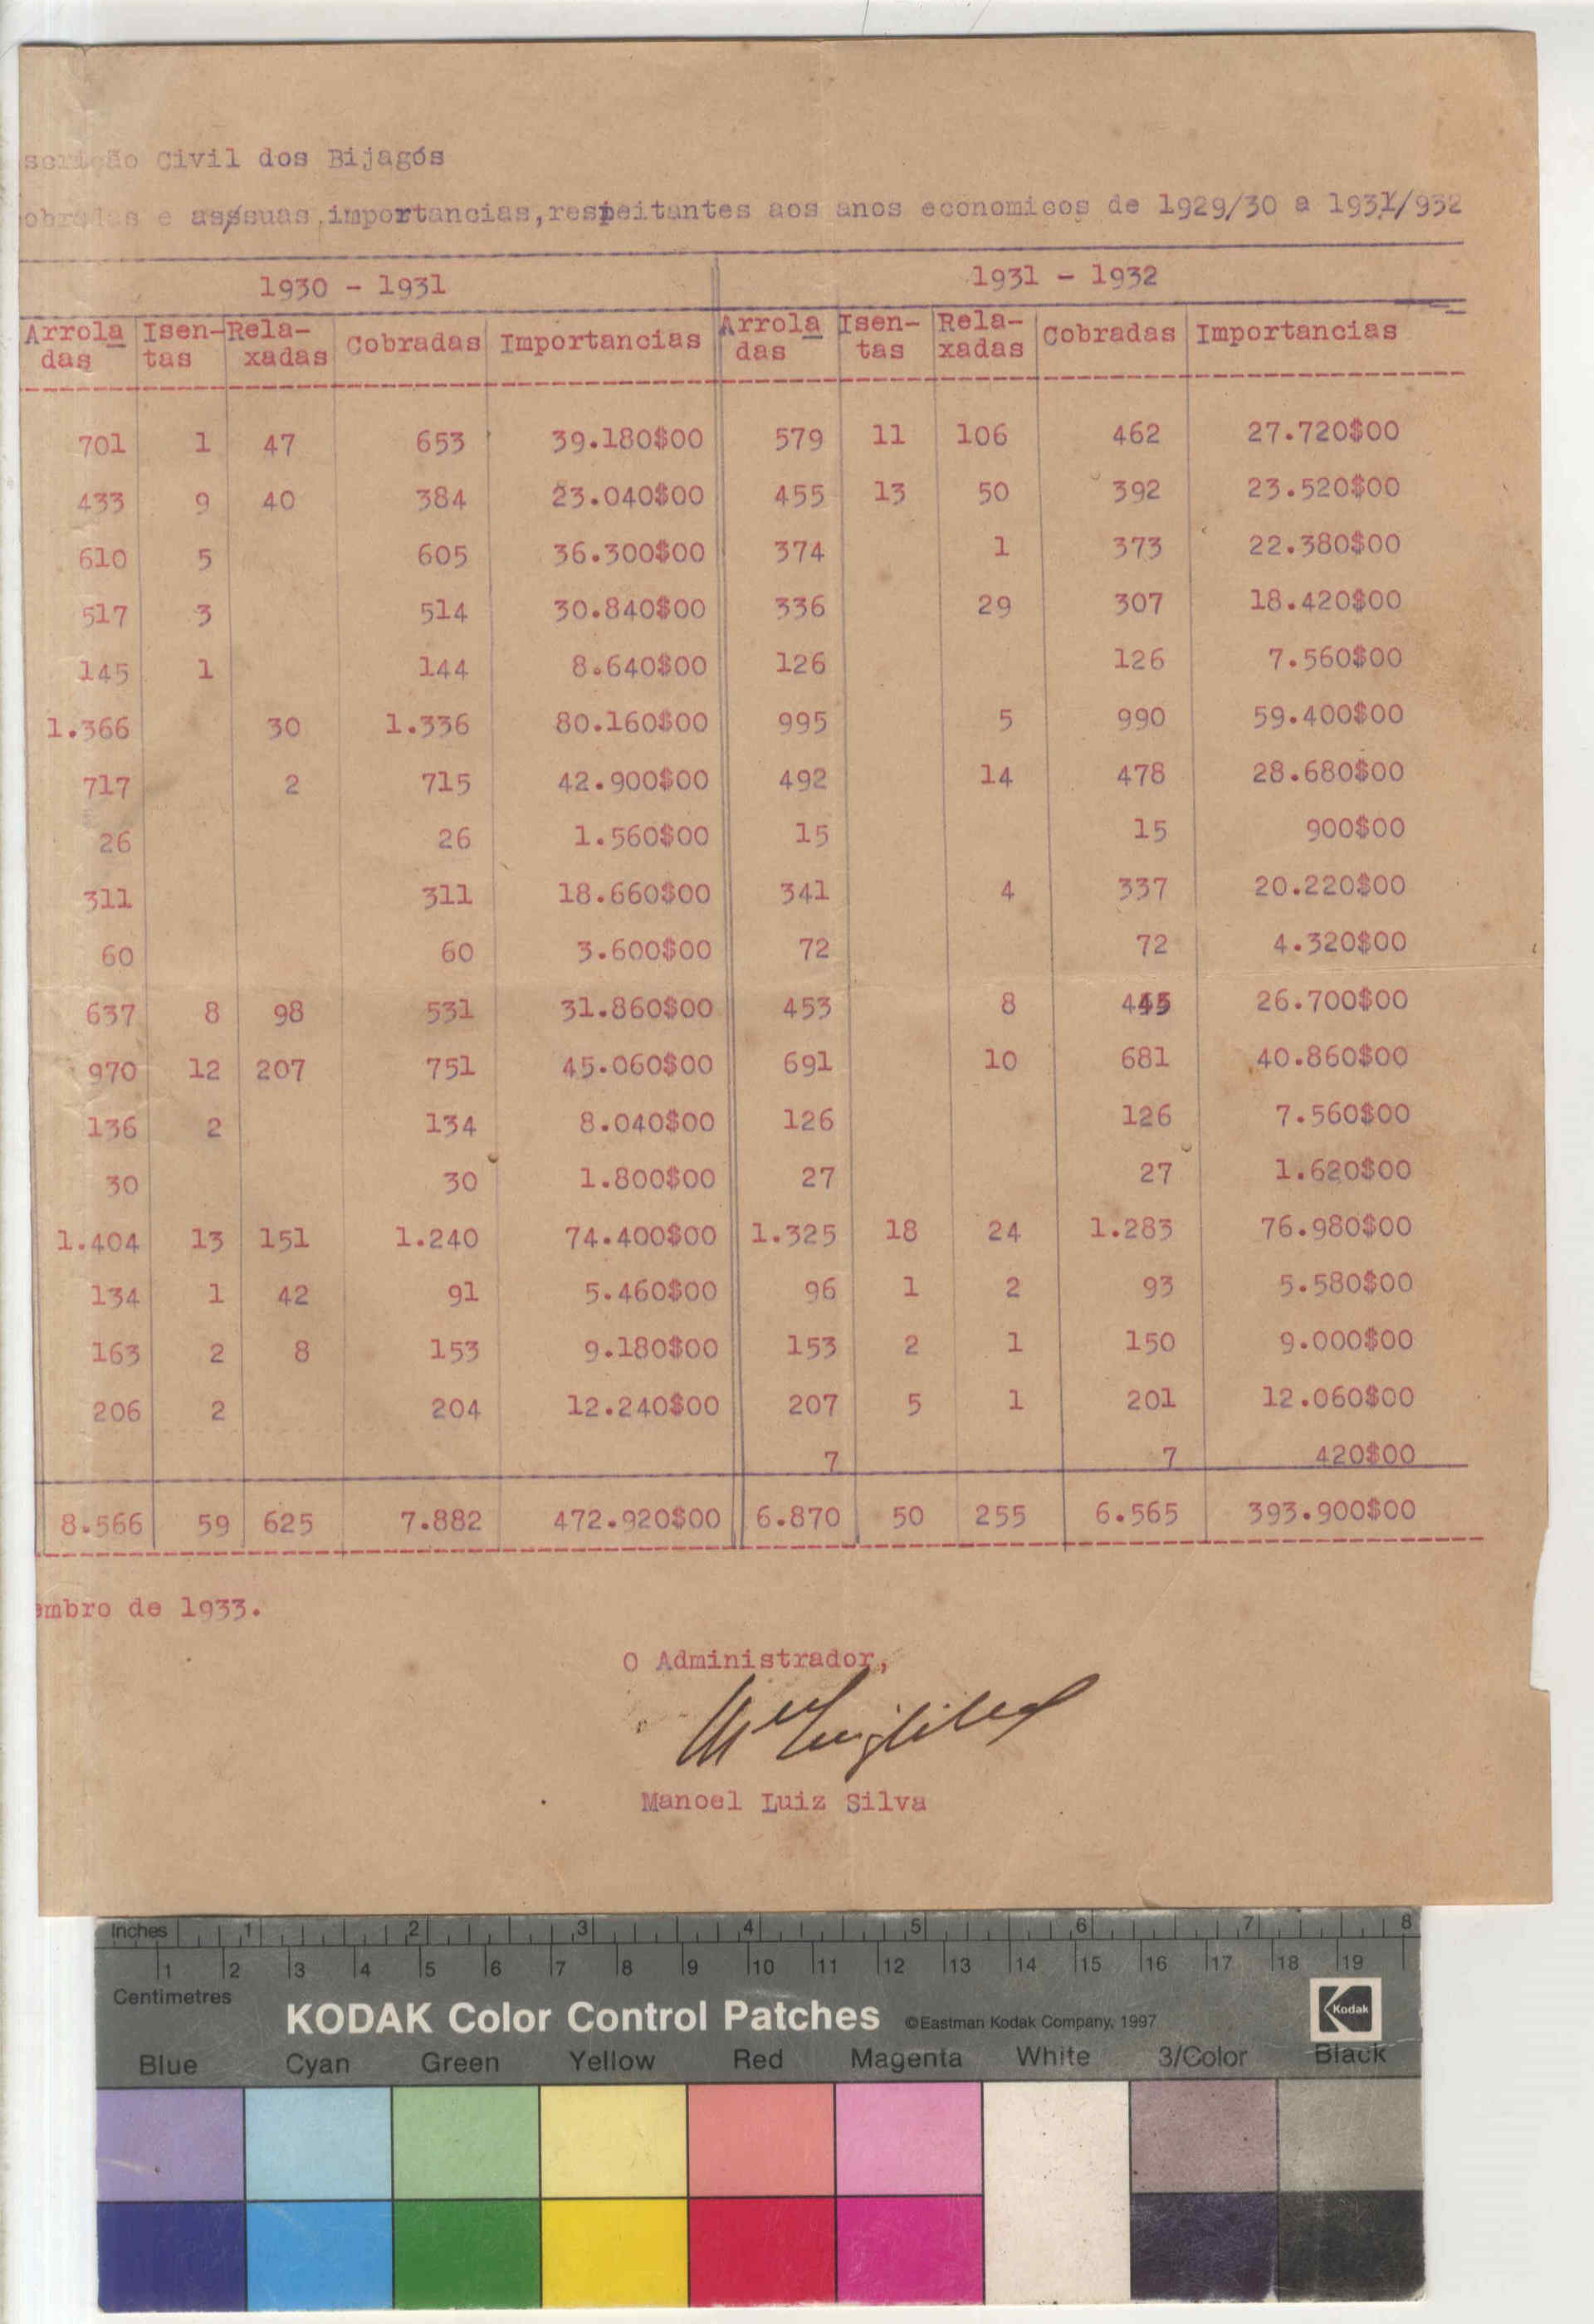 scrição Civil dos Bijagós
obradas e as suas importancias, respeitantes aos anos economicos de 1929/30 a 1931/932
1930 - 1931 1931 - 1932
Arrola Isen- Rela- Cobradas Importancias Arrola Isen- Rela- Cobradas Importancias
das tas xadas das tas xadas
701 1 47 653 39.180$00 579 11 106 462 27.720$00
433 9 40 384 23.040$00 455 13 50 392 23.520$00
610 5 605 36.300$00 374 1 373 22.380$00
517 3 514 30.840$00 336 29 307 18.420$00
145 1 144 8.640$00 126 126 7.560$00
1.366 30 1.336 80.160$00 995 5 990 59.400$00
717 2 715 42.900$00 492 14 478 28.680$00
26 26 1.560$00 15 15 900$00
311 311 18.660$00 341 4 337 20.220$00
60 60 3.600$00 72 72 4.320$00
637 8 98 531 31.860$00 453 8 445 26.700$00
970 12 207 751 45.060$00 691 10 681 40.860$00
136 2 134 8.040$00 126 126 7.560$00
30 30 1.800$00 27 27 1.620$00
1.404 13 151 1.240 74.400$00 1.325 18 24 1.283 76.980$00
134 1 42 91 5.460$00 96 1 2 93 5.580$00
163 2 8 153 9.180$00 153 2 1 150 9.000$00
206 2 204 12.240$00 207 5 1 201 12.060$00
7 7 420$00
8.566 59 625 7.882 472.920$00 6.870 50 255 6.565 393.900$00
embro de 1933.
O Administrador,
Manoel Luiz Silva
Inches 1 2 3 4 5 6 7 8
1 2 3 4 5 6 7 8 9 10 11 12 13 14 15 16 17 18 19
Centimetres
KODAK Color Control Patches ©Eastman Kodak Company, 1997 Kodak
Blue Cyan Green Yellow Red Magenta White 3/Color Black